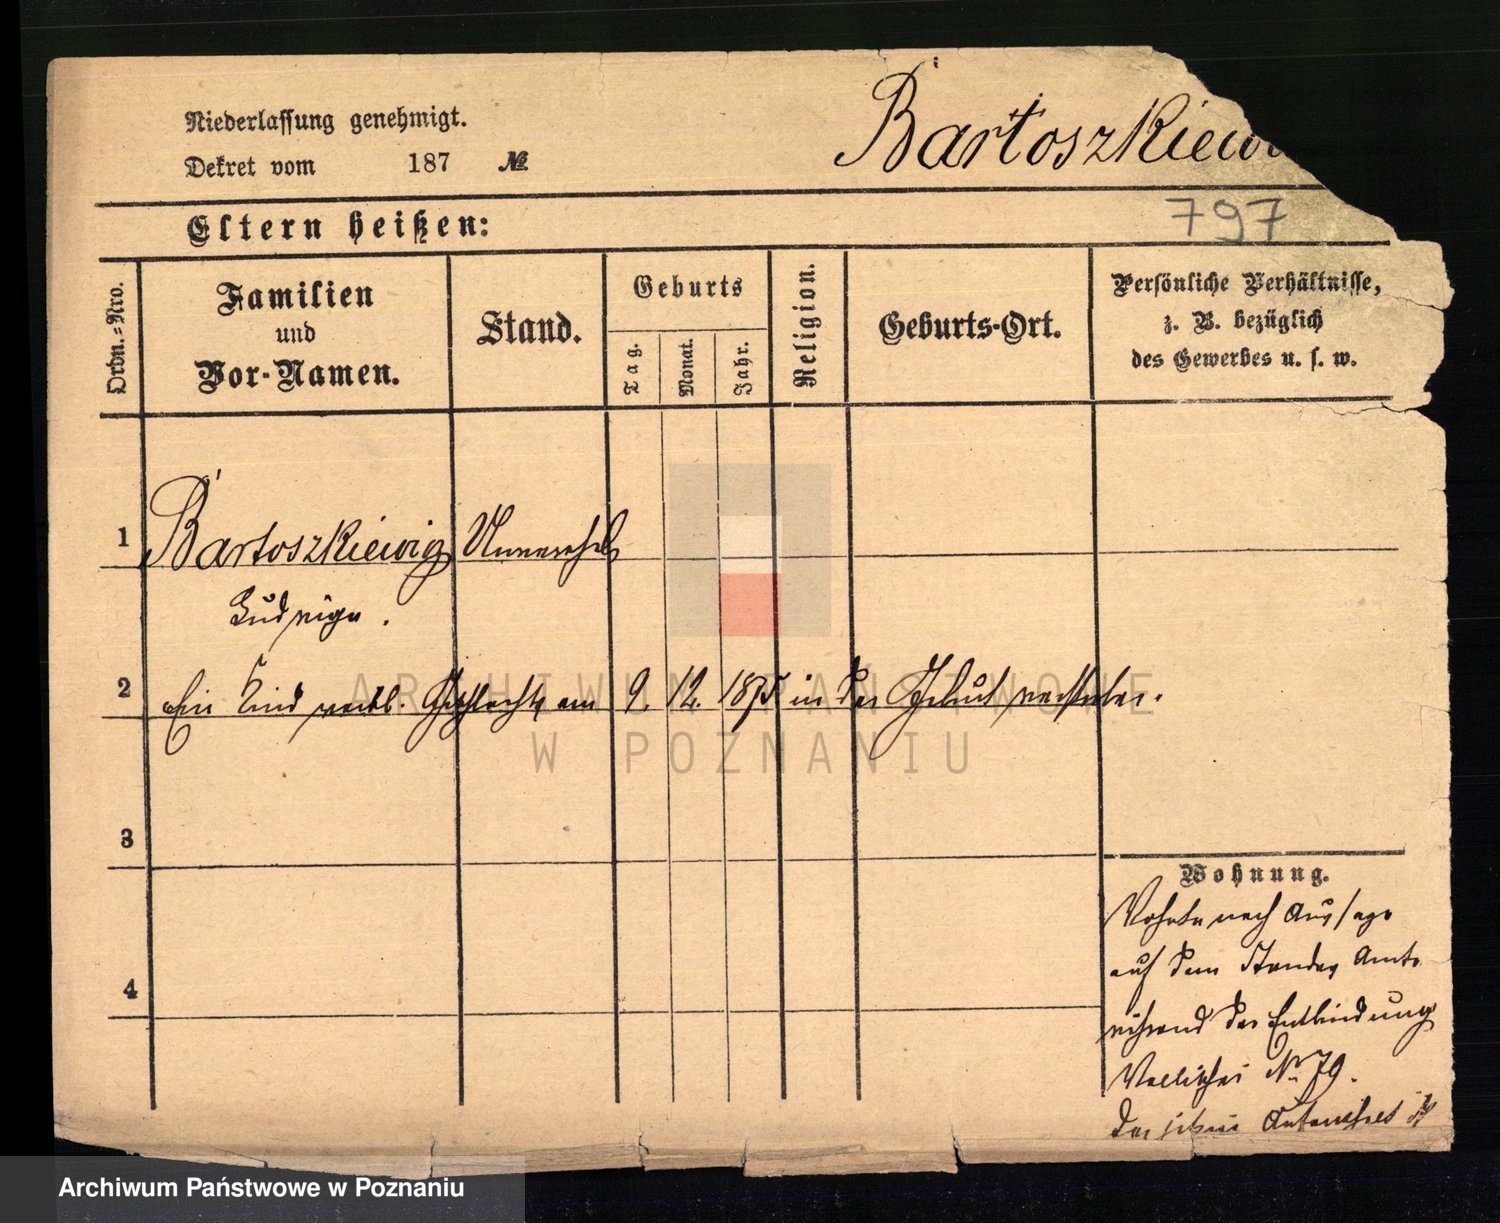 Niederlassung genehmigt.
Dekret vom 187 №
Bartoszkiew
797
Eltern heißen:
Ordn.=Nro.
Familien
und
Vor-Namen.
Stand.
Geburts
Tag.
Monat.
Jahr.
Religion.
Geburts-Ort.
Persönliche Verhältnisse,
z. B. bezüglich
des Gewerbes u. s. w.
1 Bartoszkiewicz Unverehel
Ludwiga.
2 Ein Kind weibl. Geschlechts am 9. 12. 1875 in der Geburt verstorben.
3
4
Wohnung.
Wohnte nach Aussage
auf dem Standes Amte
während der Entbindung
Wallischei No 79.
Aufenthalt
ARCHIWUM PAŃSTWOWE
W POZNANIU
Archiwum Państwowe w Poznaniu